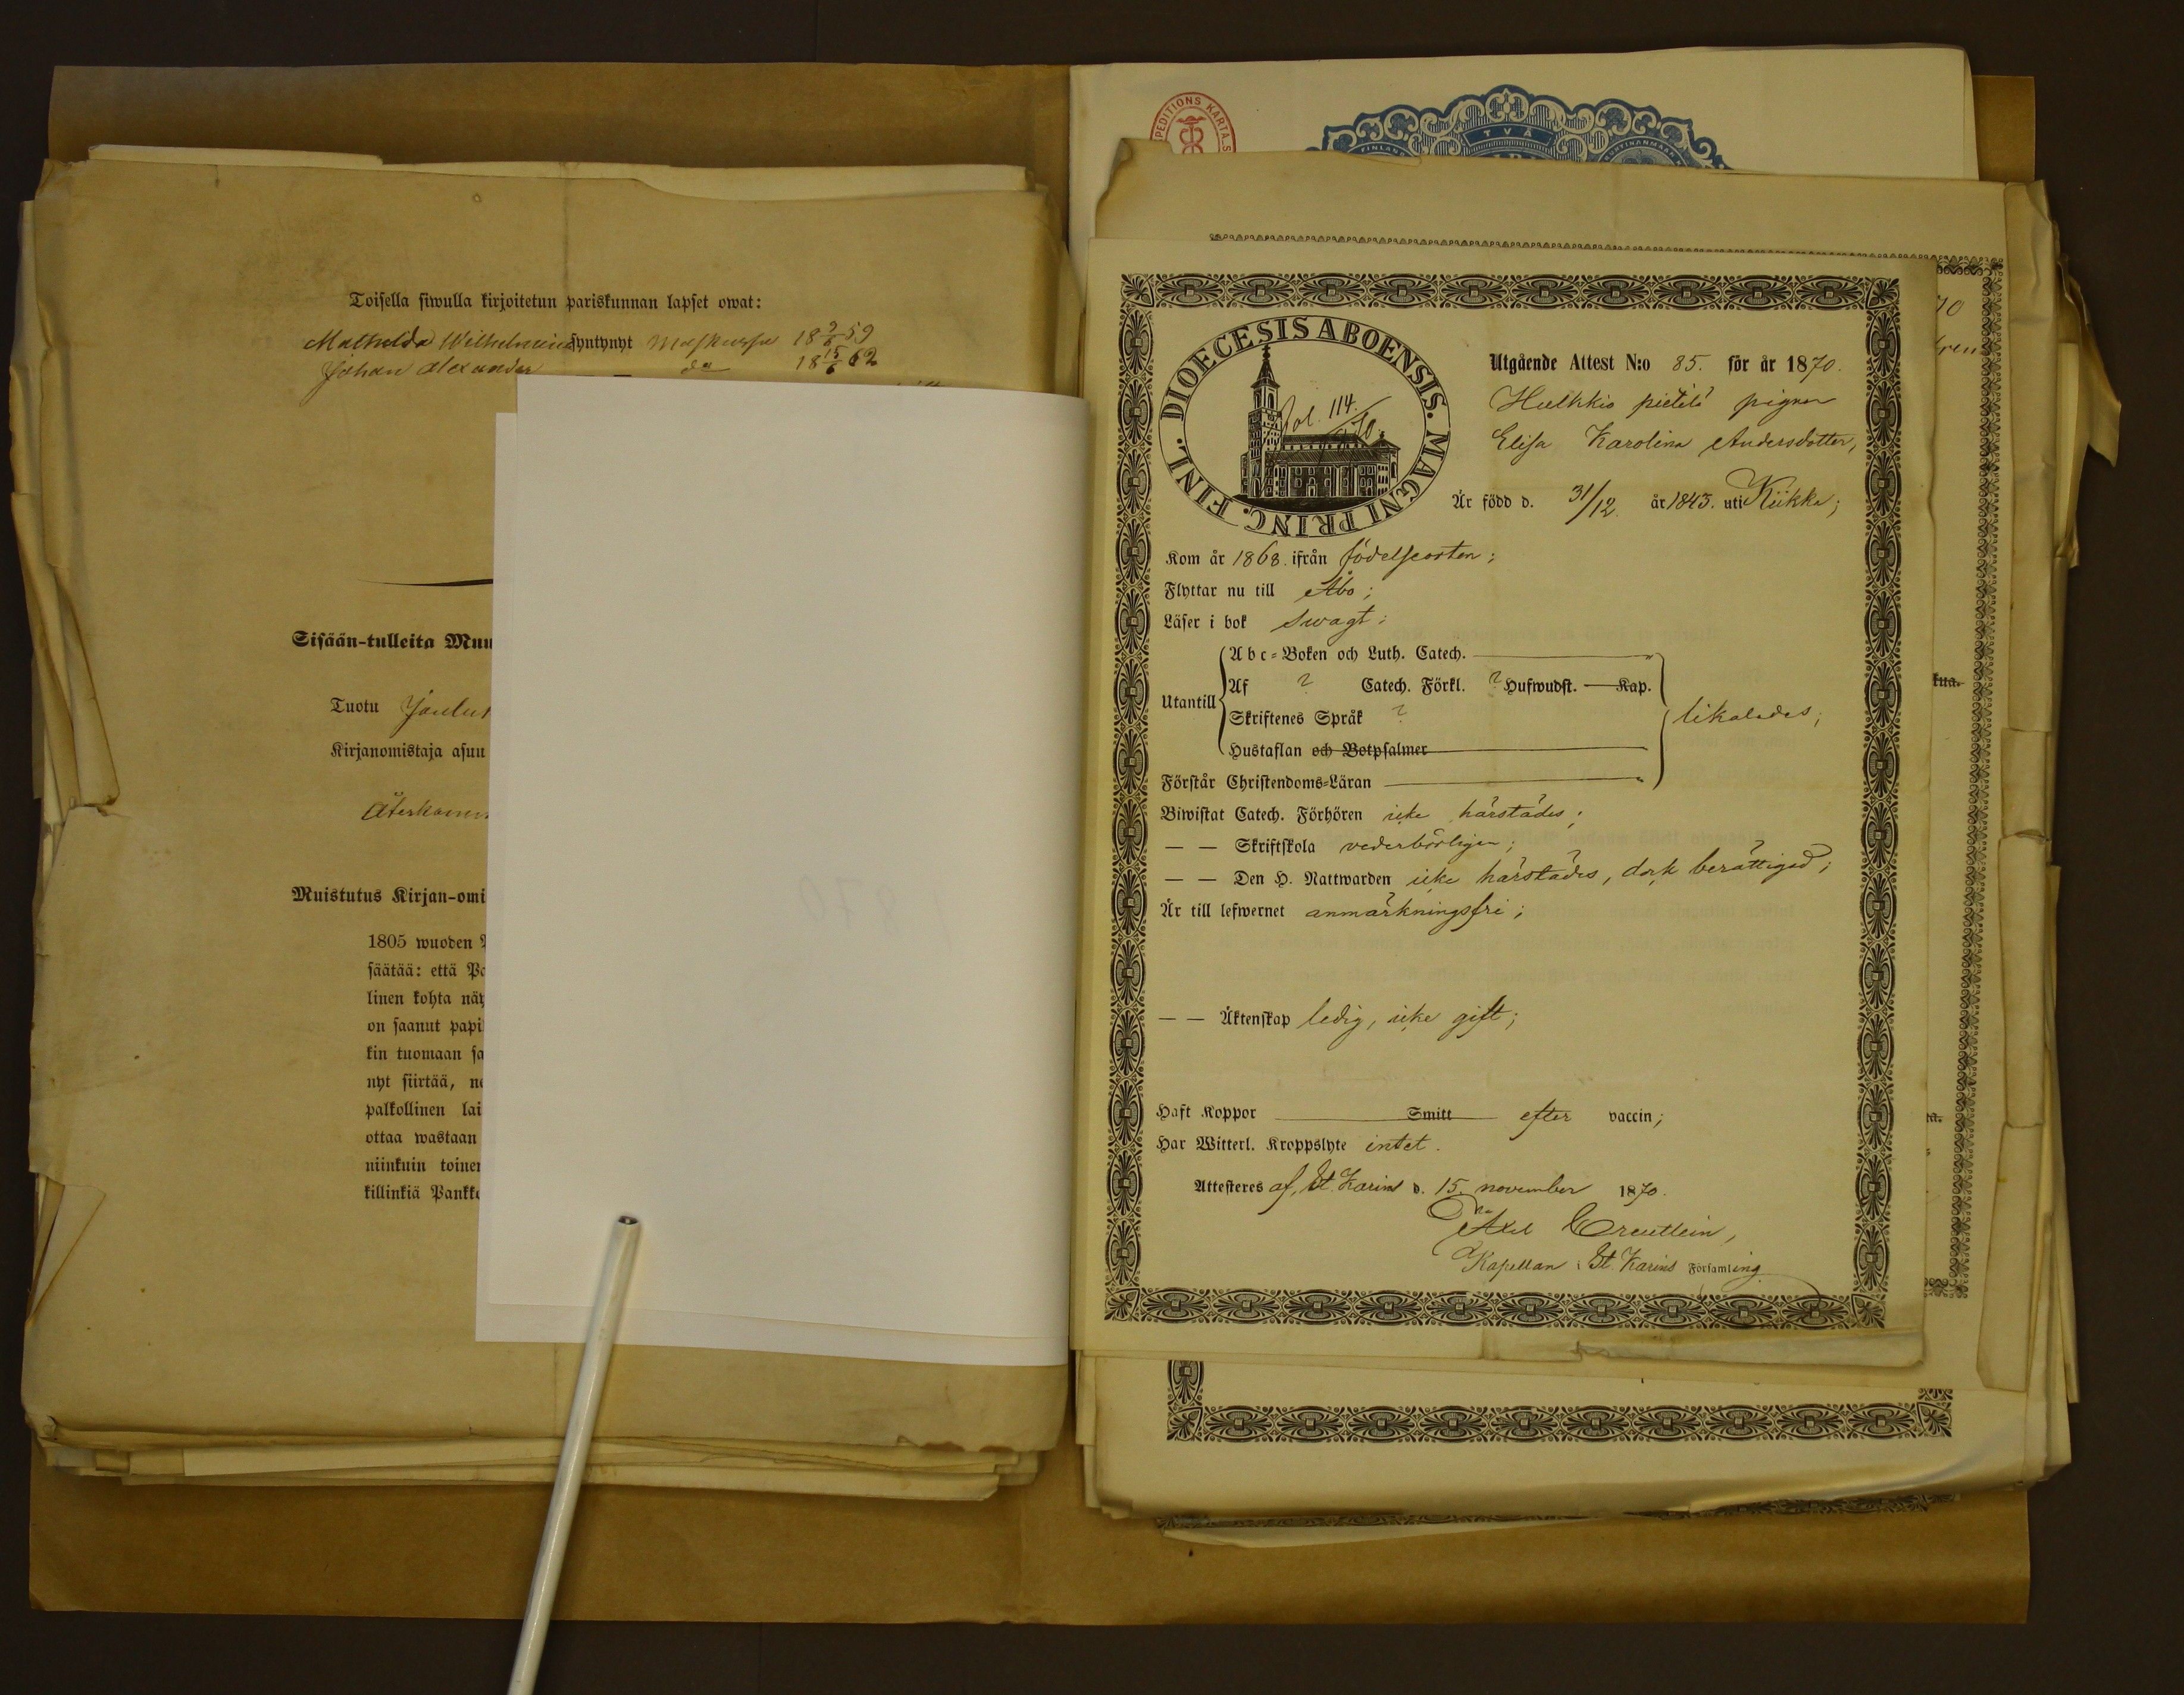 Toisella siwulla kirjoitetun pariskunnan lapset owat:
Mathilda Wilhelmina syntynyt 18 9/6 59
Johan Alexander — do 18 15/6 62
Sisään-tulleita Muu
Tuotu
Kirjanomistaja asuu
Återkomm
Muistutus Kirjan-omi
1805 wuoden
säätää: että Pa
linen kohta näy
on saanut papi
kin tuomaan sa
nyt siirtää, ne
palkollinen lai
ottaa wastaan
niinkuin toinen
killinkiä Pankko
PEDITIONS KARTA.S
TVÅ
FINLAND
DIOECESIS ABOENSIS. MAGNI PRINC. FINL.
Fol. 114./70.
Utgående Attest N:o 85. för år 1870.
Hulkkio pietilä pigan
Elisa Karolina Andersdotter,
Är född d. 31/12. år 1843. uti Kiikka;
Kom år 1868. ifrån födelseorten;
Flyttar nu till Åbo;
Läser i bok swagt;
Utantill
Abc=Boken och Luth. Catech. —
Af ? Catech. Förkl. ? Hufwudst. — Kap.
Skriftenes Språk ?
Hustaflan och Botpsalmer
likaledes;
Förstår Christendoms=Läran —
Biwistat Catech. Förhören icke härstädes;
— — Skriftskola vederbörligen;
— — Den H. Nattwarden icke härstädes, dock berättigad;
Är till lefwernet anmärkningsfri;
— — Äktenskap ledig, icke gift;
Haft Koppor — Smitt efter vaccin;
Har Witterl. Kroppslyte intet.
Attesteres af, St. Karins d. 15. november 1870.
Axel Creutlein,
Kapellan i St. Karins Församling
70
1870